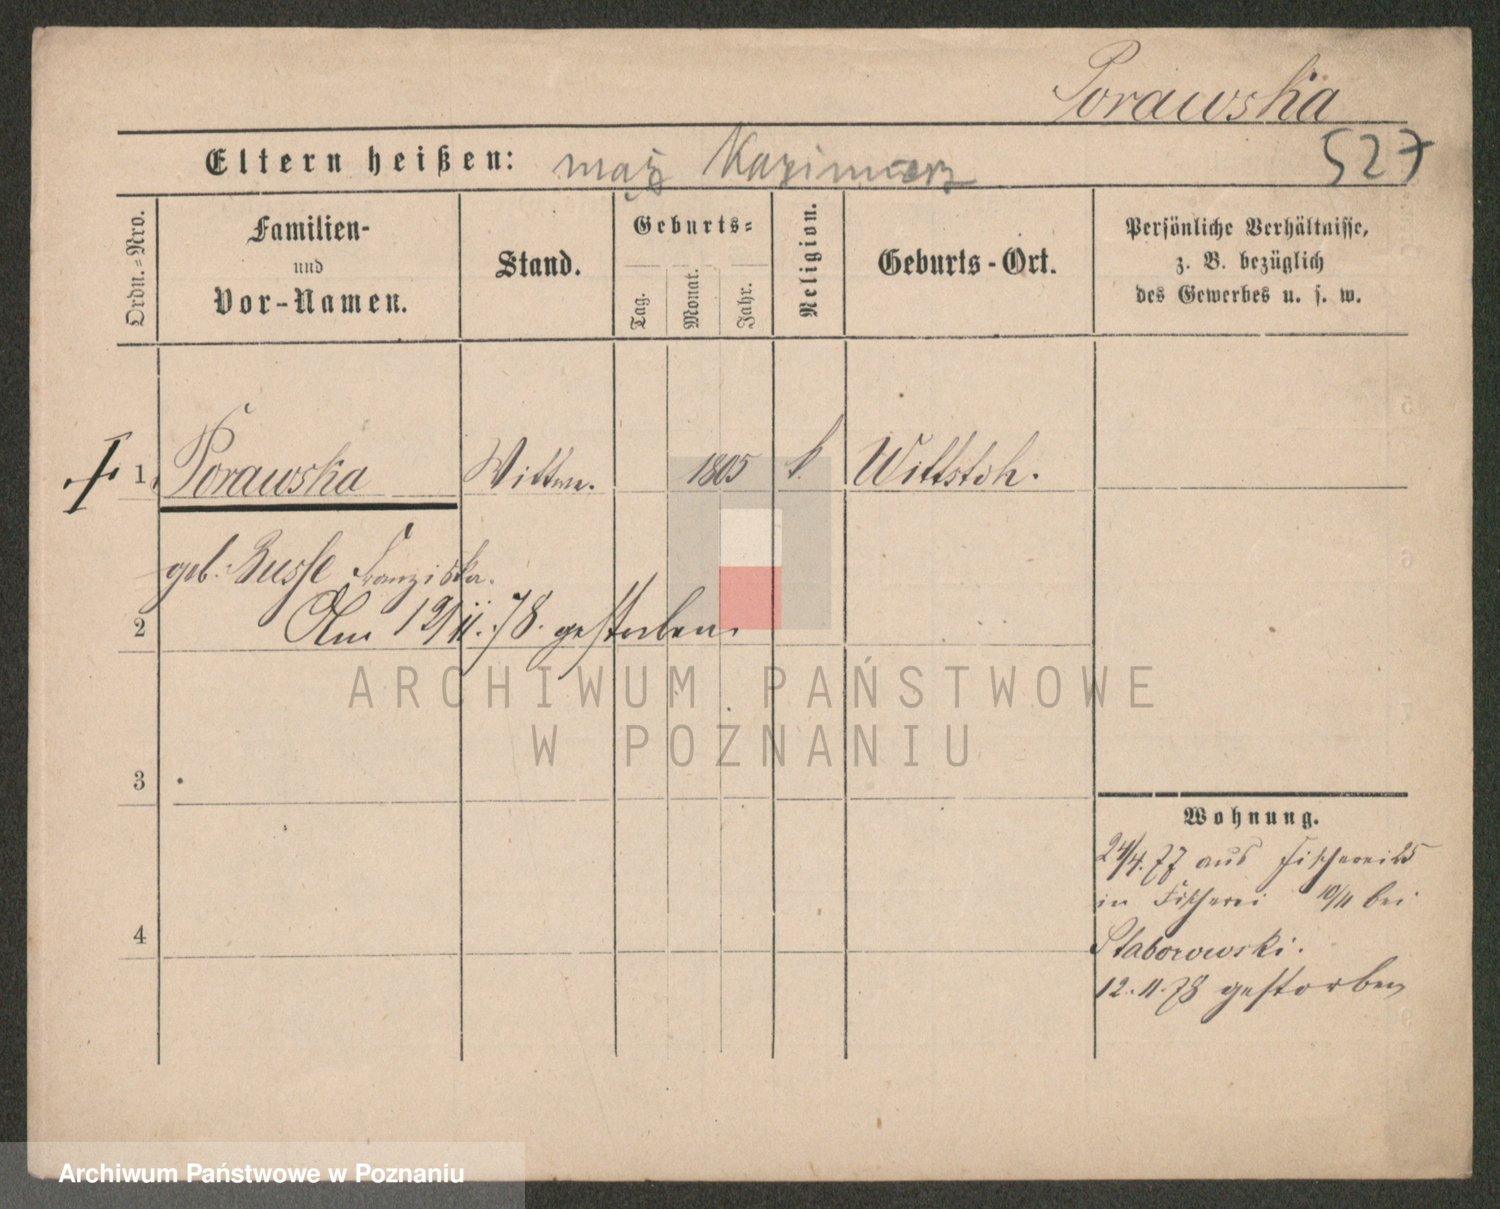 Porawska
527
Eltern heißen: mąż Kazimierz
Ordn.-Nro.
Familien-
und
Vor-Namen.
Stand.
Geburts-
Tag.
Monat.
Jahr.
Religion.
Geburts-Ort.
Persönliche Verhältnisse,
z. B. bezüglich
des Gewerbes u. s. w.
1 Porawska Wittwe. 1805 k. Wittstok.
geb. Busse Franziska.
2 Am 12/11.78. gestorben.
ARCHIWUM PAŃSTWOWE
W POZNANIU
3
4
Wohnung.
24/4.77 aus Fischerei 25
in Fischerei 10/11 bei
Staborowski.
12.11.78 gestorben
Archiwum Państwowe w Poznaniu